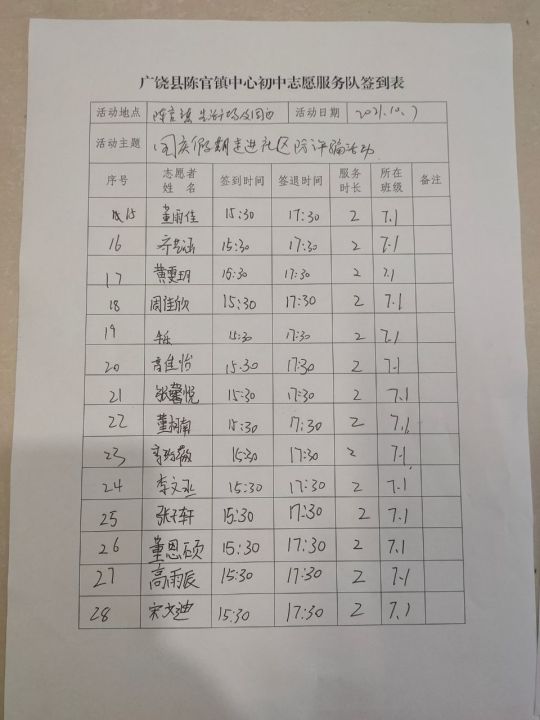 广饶县陈官镇中心初中志愿服务队签到表
活动地点 陈官镇 活动日期 2021.10.7
活动主题 国庆假期走进社区防诈骗活动
序号 志愿者姓名 签到时间 签退时间 服务时长 所在班级 备注
15 董雨佳 15:30 17:30 2 7.1
16 15:30 17:30 2 7.1
17 黄雯玥 15:30 17:30 2 7.1
18 周佳欣 15:30 17:30 2 7.1
19 15:30 17:30 2 7.1
20 高佳怡 15:30 17:30 2 7.1
21 张馨悦 15:30 17:30 2 7.1
22 董柯南 15:30 17:30 2 7.1
23 15:30 17:30 2 7.1
24 李文丞 15:30 17:30 2 7.1
25 张子轩 15:30 17:30 2 7.1
26 董恩硕 15:30 17:30 2 7.1
27 高雨辰 15:30 17:30 2 7.1
28 宋文迪 15:30 17:30 2 7.1